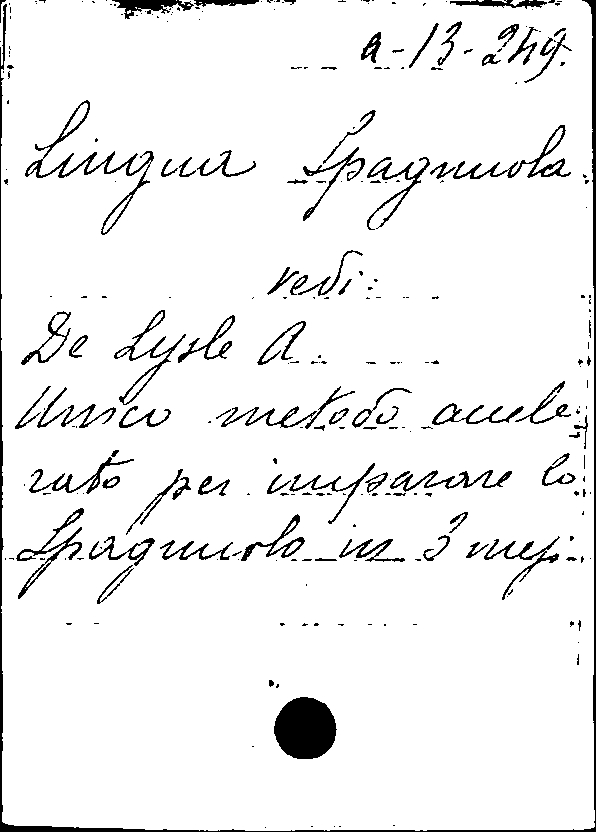 a-13-249.
Lingua Spagnuola
vedi:
De Lysle A.
Unico metodo accele
rato per imparare lo
Spagnuolo in 3 mesi